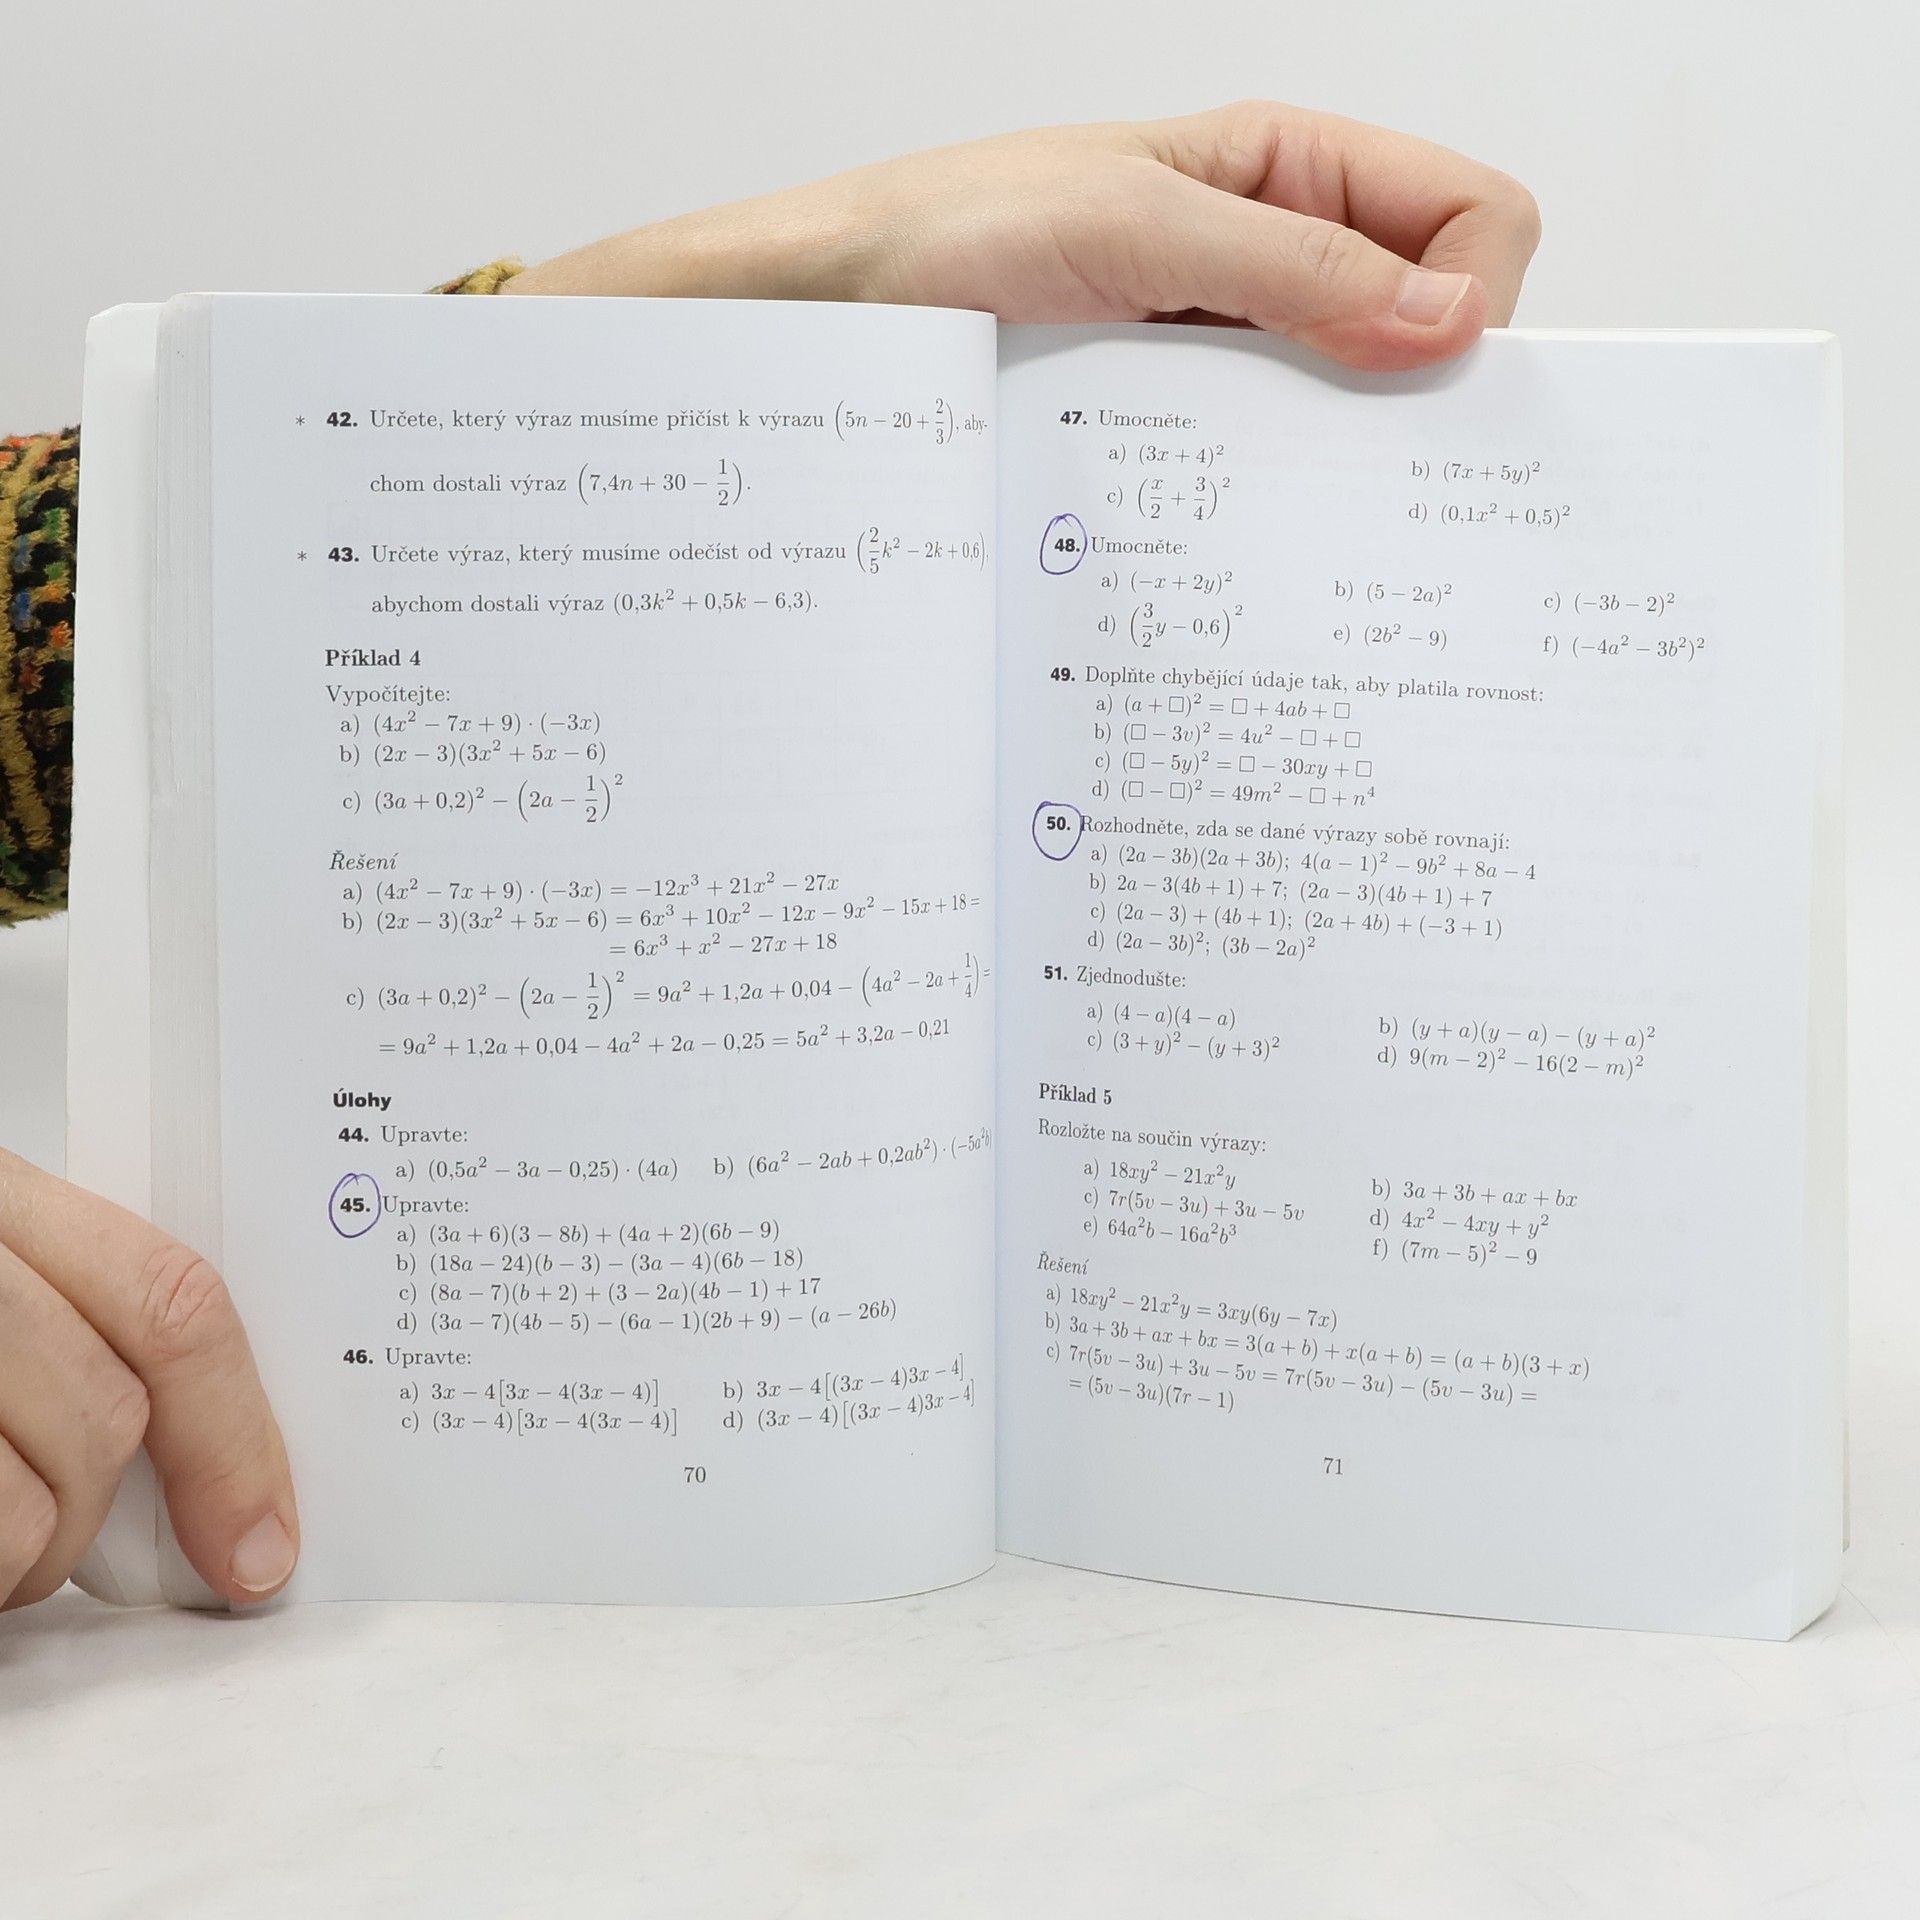 * 42. Určete, který výraz musíme přičíst k výrazu (5n − 20 + 2/3), aby-
chom dostali výraz (7,4n + 30 − 1/2).
* 43. Určete výraz, který musíme odečíst od výrazu (2/5k² − 2k + 0,6),
abychom dostali výraz (0,3k² + 0,5k − 6,3).
Příklad 4
Vypočítejte:
a) (4x² − 7x + 9) · (−3x)
b) (2x − 3)(3x² + 5x − 6)
c) (3a + 0,2)² − (2a − 1/2)²
Řešení
a) (4x² − 7x + 9) · (−3x) = −12x³ + 21x² − 27x
b) (2x − 3)(3x² + 5x − 6) = 6x³ + 10x² − 12x − 9x² − 15x + 18 =
= 6x³ + x² − 27x + 18
c) (3a + 0,2)² − (2a − 1/2)² = 9a² + 1,2a + 0,04 − (4a² − 2a + 1/4) =
= 9a² + 1,2a + 0,04 − 4a² + 2a − 0,25 = 5a² + 3,2a − 0,21
Úlohy
44. Upravte:
a) (0,5a² − 3a − 0,25) · (4a) b) (6a² − 2ab + 0,2ab²) · (−5a²b)
45. Upravte:
a) (3a + 6)(3 − 8b) + (4a + 2)(6b − 9)
b) (18a − 24)(b − 3) − (3a − 4)(6b − 18)
c) (8a − 7)(b + 2) + (3 − 2a)(4b − 1) + 17
d) (3a − 7)(4b − 5) − (6a − 1)(2b + 9) − (a − 26b)
46. Upravte:
a) 3x − 4[3x − 4(3x − 4)] b) 3x − 4[(3x − 4)3x − 4]
c) (3x − 4)[3x − 4(3x − 4)] d) (3x − 4)[(3x − 4)3x − 4]
70
47. Umocněte:
a) (3x + 4)² b) (7x + 5y)²
c) (x/2 + 3/4)² d) (0,1x² + 0,5)²
48. Umocněte:
a) (−x + 2y)² b) (5 − 2a)² c) (−3b − 2)²
d) (3/2y − 0,6)² e) (2b² − 9) f) (−4a² − 3b²)²
49. Doplňte chybějící údaje tak, aby platila rovnost:
a) (a + □)² = □ + 4ab + □
b) (□ − 3v)² = 4u² − □ + □
c) (□ − 5y)² = □ − 30xy + □
d) (□ − □)² = 49m² − □ + n⁴
50. Rozhodněte, zda se dané výrazy sobě rovnají:
a) (2a − 3b)(2a + 3b); 4(a − 1)² − 9b² + 8a − 4
b) 2a − 3(4b + 1) + 7; (2a − 3)(4b + 1) + 7
c) (2a − 3) + (4b + 1); (2a + 4b) + (−3 + 1)
d) (2a − 3b)²; (3b − 2a)²
51. Zjednodušte:
a) (4 − a)(4 − a) b) (y + a)(y − a) − (y + a)²
c) (3 + y)² − (y + 3)² d) 9(m − 2)² − 16(2 − m)²
Příklad 5
Rozložte na součin výrazy:
a) 18xy² − 21x²y b) 3a + 3b + ax + bx
c) 7r(5v − 3u) + 3u − 5v d) 4x² − 4xy + y²
e) 64a²b − 16a²b³ f) (7m − 5)² − 9
Řešení
a) 18xy² − 21x²y = 3xy(6y − 7x)
b) 3a + 3b + ax + bx = 3(a + b) + x(a + b) = (a + b)(3 + x)
c) 7r(5v − 3u) + 3u − 5v = 7r(5v − 3u) − (5v − 3u) =
= (5v − 3u)(7r − 1)
71